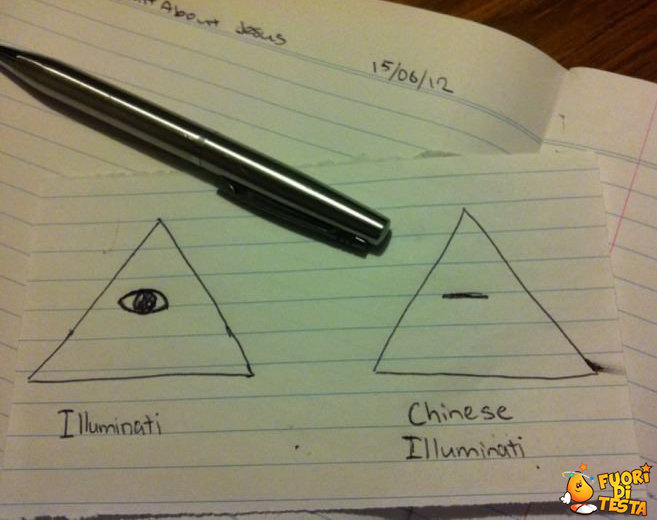 About Jesus
15/06/12
Illuminati
Chinese
Illuminati
FUORI
DI
TESTA